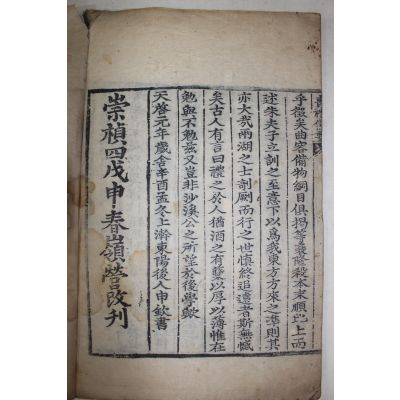 乎徵矣曲容備物綱目俱揚等
本末順 上而
述朱夫子立訓之至意下以爲我東方方來之準則其
亦大哉兩湖之士剞劂而行之世愼終追遠者斯無憾
矣古人有言曰禮之於人猶酒之有糵以厚以薄惟在
勉與不勉玆又豈非沙溪公之所望於後學歟
天啓元年歲舍辛酉孟冬上澣東陽後人申欽書
崇禎四戊申春嶺營改刊